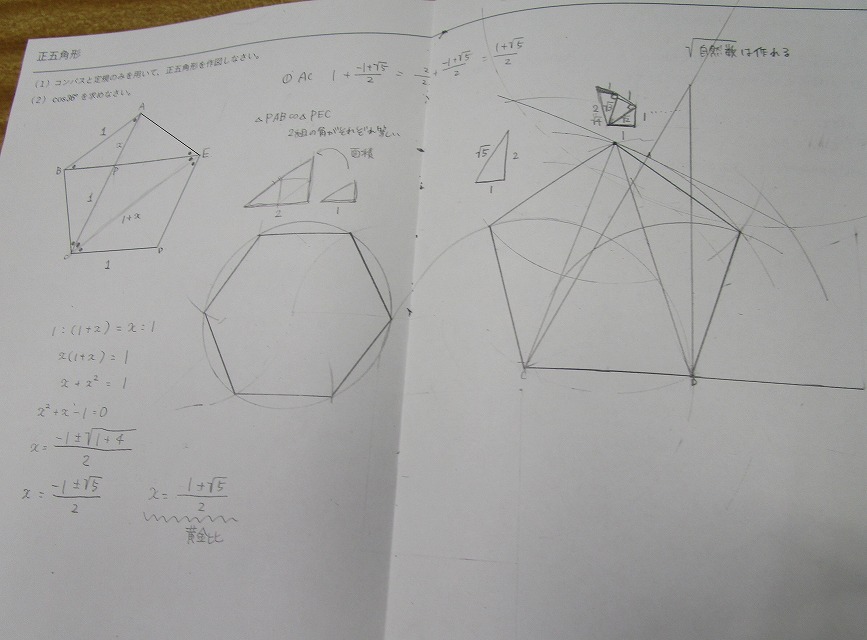 正五角形
(1) コンパスと定規のみを用いて、正五角形を作図しなさい。
(2) cos36°を求めなさい。
① AC 1 + \frac{-1+√5}{2} = \frac{2}{2} + \frac{-1+√5}{2} = \frac{1+√5}{2}
△PAB∽△PEC
2組の角がそれぞれ等しい
面積
2
1
A
1
x
B
P
E
1
1+x
C
D
1
1:(1+x) = x:1
x(1+x) = 1
x + x² = 1
x² + x - 1 = 0
x = \frac{-1±√1+4}{2}
x = \frac{-1±√5}{2}
x = \frac{-1+√5}{2}
黄金比
√自然数 は作れる
1
1
1
1
√5
2
1
C
D